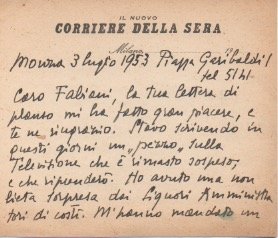 IL NUOVO
CORRIERE DELLA SERA
Milano
Monza 3 luglio 1953 Piazza Garibaldi 1
tel 5141
Caro Fabiani, la tua lettera di
plauso mi ha fatto gran piacere, e
te ne ringrazio. Stavo scrivendo in
questi giorni un "pezzo" sulla
Televisione che è rimasto sospeso,
e che riprenderò. Ho avuto una non
lieta sorpresa dai Signori Amministra
tori di costì. M'hanno mandato un